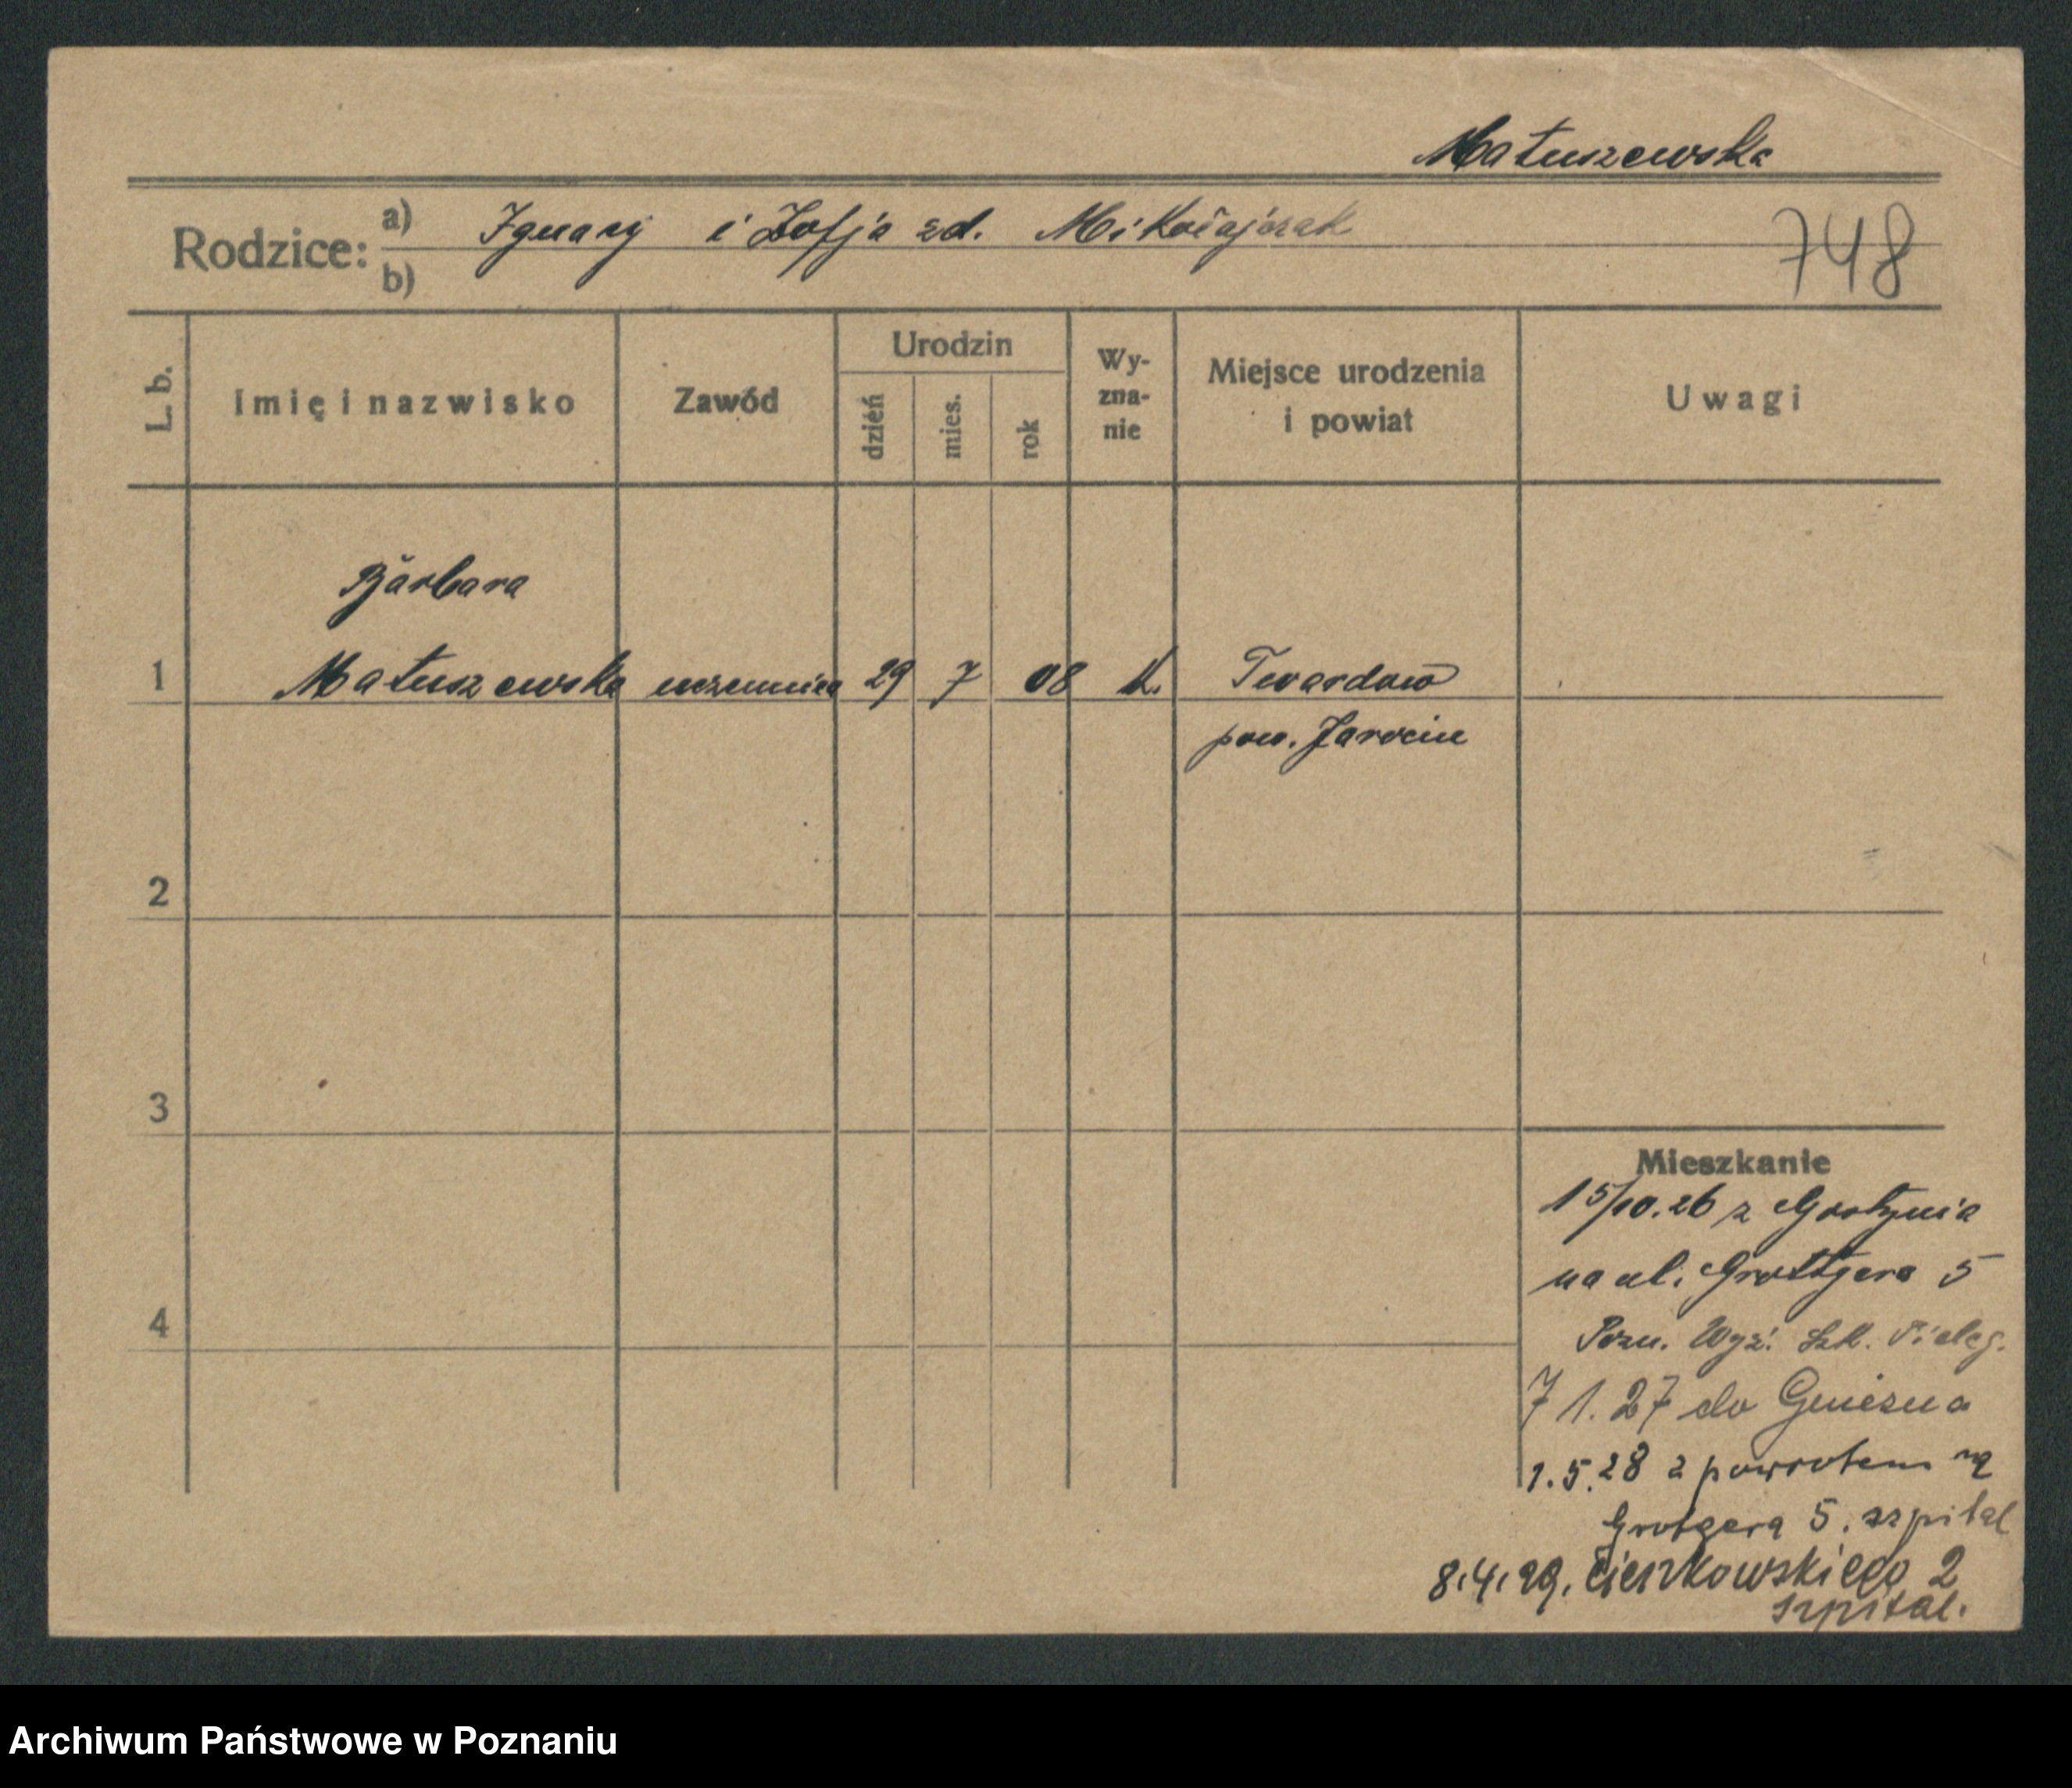 Matuszewska
Rodzice: a) Ignacy i Zofja zd. Mikołajczak
b)
748
L. b.
Imię i nazwisko
Zawód
Urodzin
dzień
mies.
rok
Wy-
zna-
nie
Miejsce urodzenia
i powiat
Uwagi
Barbara
1 Matuszewska uczennica 29 7 08 k. Twardów
pow. Jarocin
2
3
4
Mieszkanie
15/10.26 z Gostynia
na ul. Grottgera 5
Pozn. Wyż. Szk. Pieleg.
7 1.27 do Gniezna
1.5.28 z powrotem na
Grotgera 5. szpital
8.4.29. Cieszkowskiego 2
szpital.
Archiwum Państwowe w Poznaniu